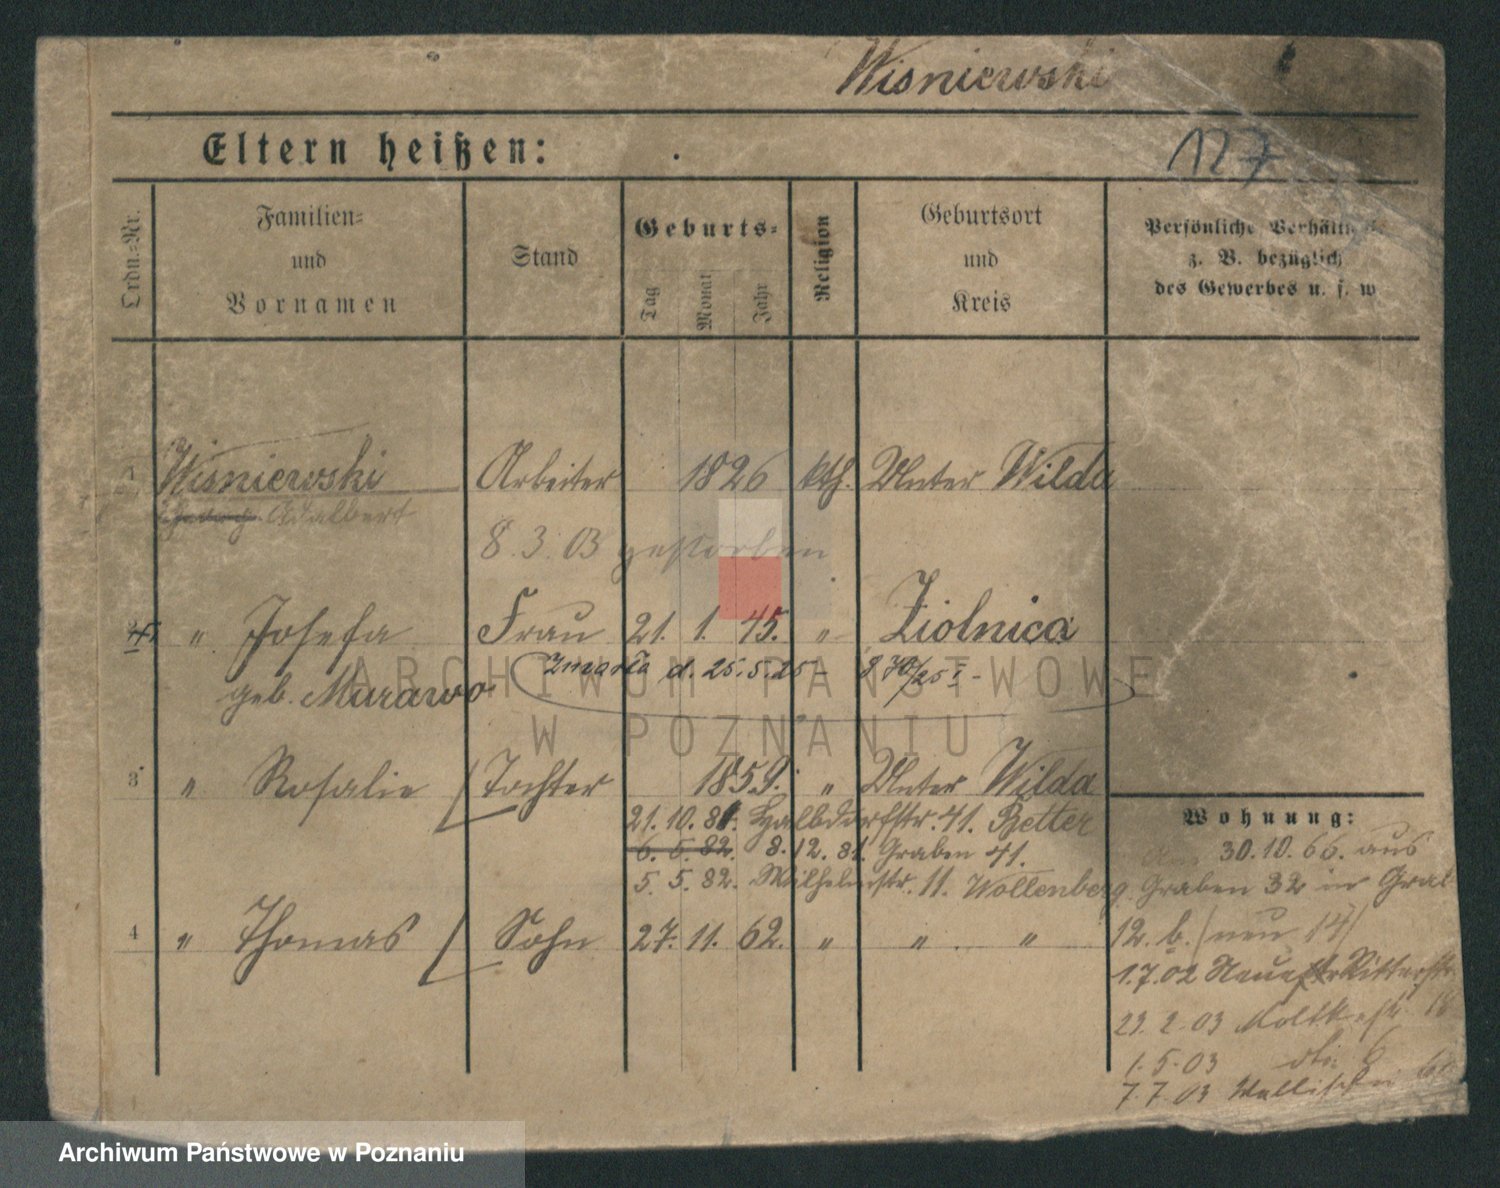 Wisniewski
Eltern heißen:
127
Ordn.-Nr.
Familien-
und
Vornamen
Stand
Geburts-
Tag
Monat
Jahr
Religion
Geburtsort
und
Kreis
Persönliche Verhältn
z. B. bezüglich
des Gewerbes u. s. w
1 Wisniewski Arbeiter 1826 kth. Unter Wilda
Adalbert
8. 3. 03 gestorben
" Josefa Frau 21. 1. 45. " Ziolnica
zmarła d. 25. 5. 25 -
geb. Murawo
ARCHIWUM PAŃSTWOWE
W POZNANIU
3 " Rosalie Tochter 1859. " Unter Wilda
21. 10. 81. Halbdorfstr. 41. Better
6. 5. 82. 8. 12. 81. Graben 41.
5. 5. 82. Wilhelmstr. 11. Wollenberg
4 " Thomas Sohn 27. 11. 62. " " "
Wohnung:
30. 10. 66. aus
Graben 32 in Gra
12. b. (neu 14)
1.7.02 Neue Ritterstr.
23. 2. 03 Moltkestr. 18
1. 5. 03 dto. 6
7. 7. 03 Wallischei
Archiwum Państwowe w Poznaniu